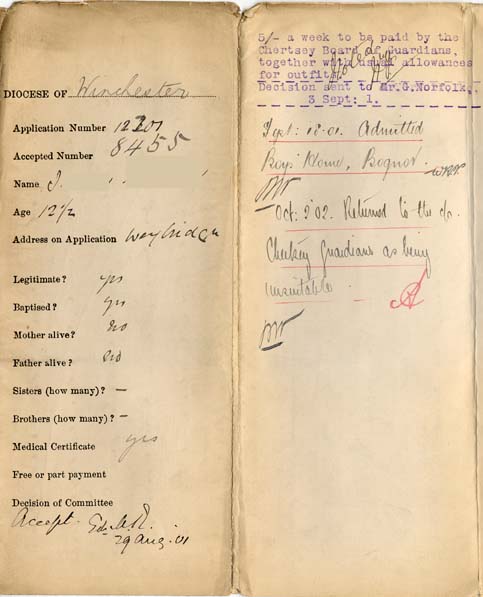 DIOCESE OF Winchester
Application Number 12201
Accepted Number 8455
Name J.
Age 12½
Address on Application Weybridge
Legitimate? yes
Baptised? yes
Mother alive? no
Father alive? no
Sisters (how many)? —
Brothers (how many)? —
Medical Certificate yes
Free or part payment
Decision of Committee
Accept.
29 Aug. 01
5/- a week to be paid by the
Chertsey Board of Guardians,
together with usual allowances
for outfit.
Decision sent to Mr.G.Norfolk.,
3 Sept: 1.
Sept: 18.01. Admitted
Boys' Home, Bognor.
Oct: 9'02. Returned to the c/o.
Chertsey Guardians as being
unsuitable.